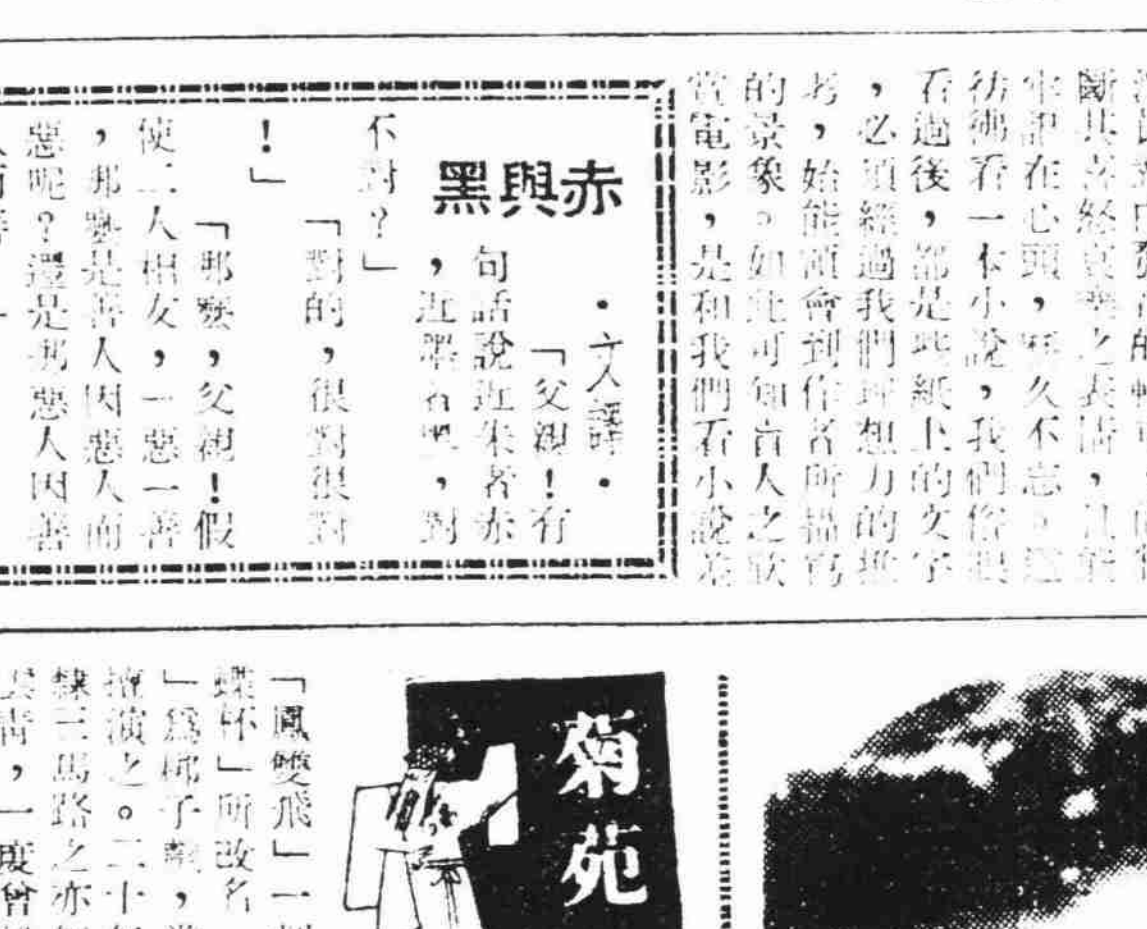 斷其喜怒哀樂之表情，
牢記在心頭，經久不忘。
彷彿看一本小說，我們俗眼
看過後，都是些紙上的文字
，必須經過我們理想力的推
考，始能領會到作者所描寫
的景象。如此可知盲人之欣
賞電影，是和我們看小說差
赤與黑
·文譯·
「父親！有
句話說近朱者赤
，近墨者黑，對
不對？」
「對的，很對很對
！」
「那麼，父親！假
使二人相友，一惡一善
，那麼是善人因惡人而
惡呢？還是那惡人因善
菊苑
「鳳雙飛」一
蝶杯」所改名
」爲梆子劇，
擅演之。二十
隸三馬路之亦
，一度曾